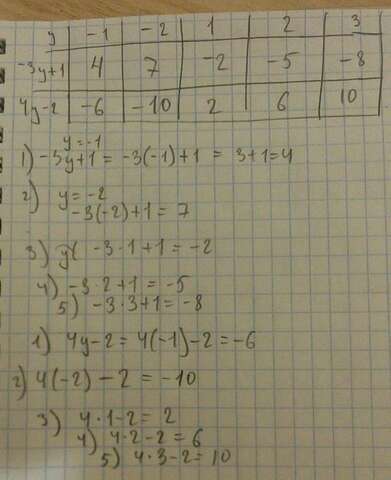 y | -1 | -2 | 1 | 2 | 3
-3y+1 | 4 | 7 | -2 | -5 | -8
4y-2 | -6 | -10 | 2 | 6 | 10
y=-1
1) -3y+1 = -3(-1)+1 = 3+1=4
2) y=-2
-3(-2)+1=7
3) -3·1+1=-2
4) -3·2+1=-5
5) -3·3+1=-8
1) 4y-2=4(-1)-2=-6
2) 4(-2)-2=-10
3) 4·1-2=2
4) 4·2-2=6
5) 4·3-2=10